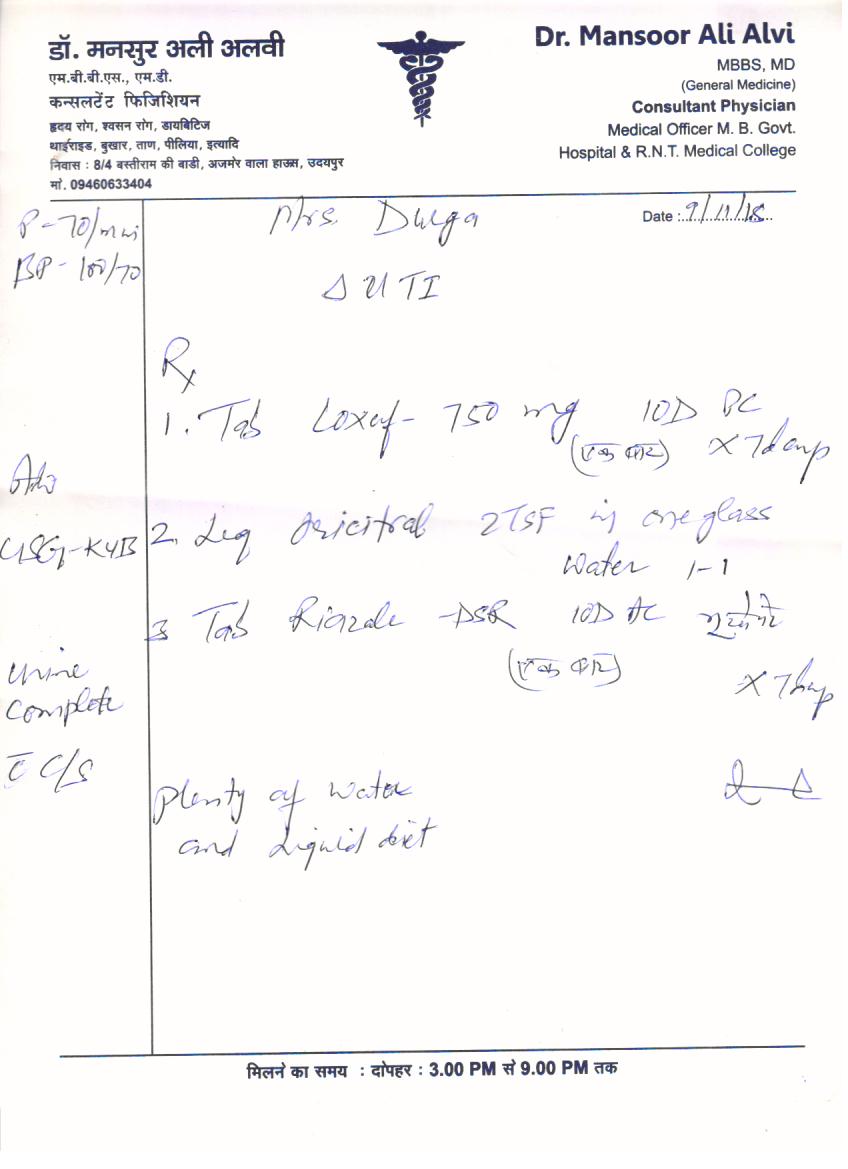 डॉ. मनसुर अली अलवी
एम.बी.बी.एस., एम.डी.
कन्सलटेंट फिजिशियन
हृदय रोग, श्वसन रोग, डायबिटिज
थाईराइड, बुखार, ताण, पीलिया, इत्यादि
निवास : 8/4 बस्तीराम की बाडी, अजमेर वाला हाऊस, उदयपुर
मो. 09460633404
Dr. Mansoor Ali Alvi
MBBS, MD
(General Medicine)
Consultant Physician
Medical Officer M. B. Govt.
Hospital & R.N.T. Medical College
P - 70/min
BP - 100/70
Mrs. Durga
Date : 9/11/18
Δ UTI
Rx
1. Tab Loxof - 750 mg 1OD PC
(एक बार) X 7days
Adv
USG - KUB
2. Liq Oricitral 2TSF in one glass
water 1-1
3 Tab Riazole - DSR 1OD AC
(एक बार)
X 7days
Urine
Complete
C/S
Plenty of water
and liquid diet
मिलने का समय : दोपहर : 3.00 PM से 9.00 PM तक